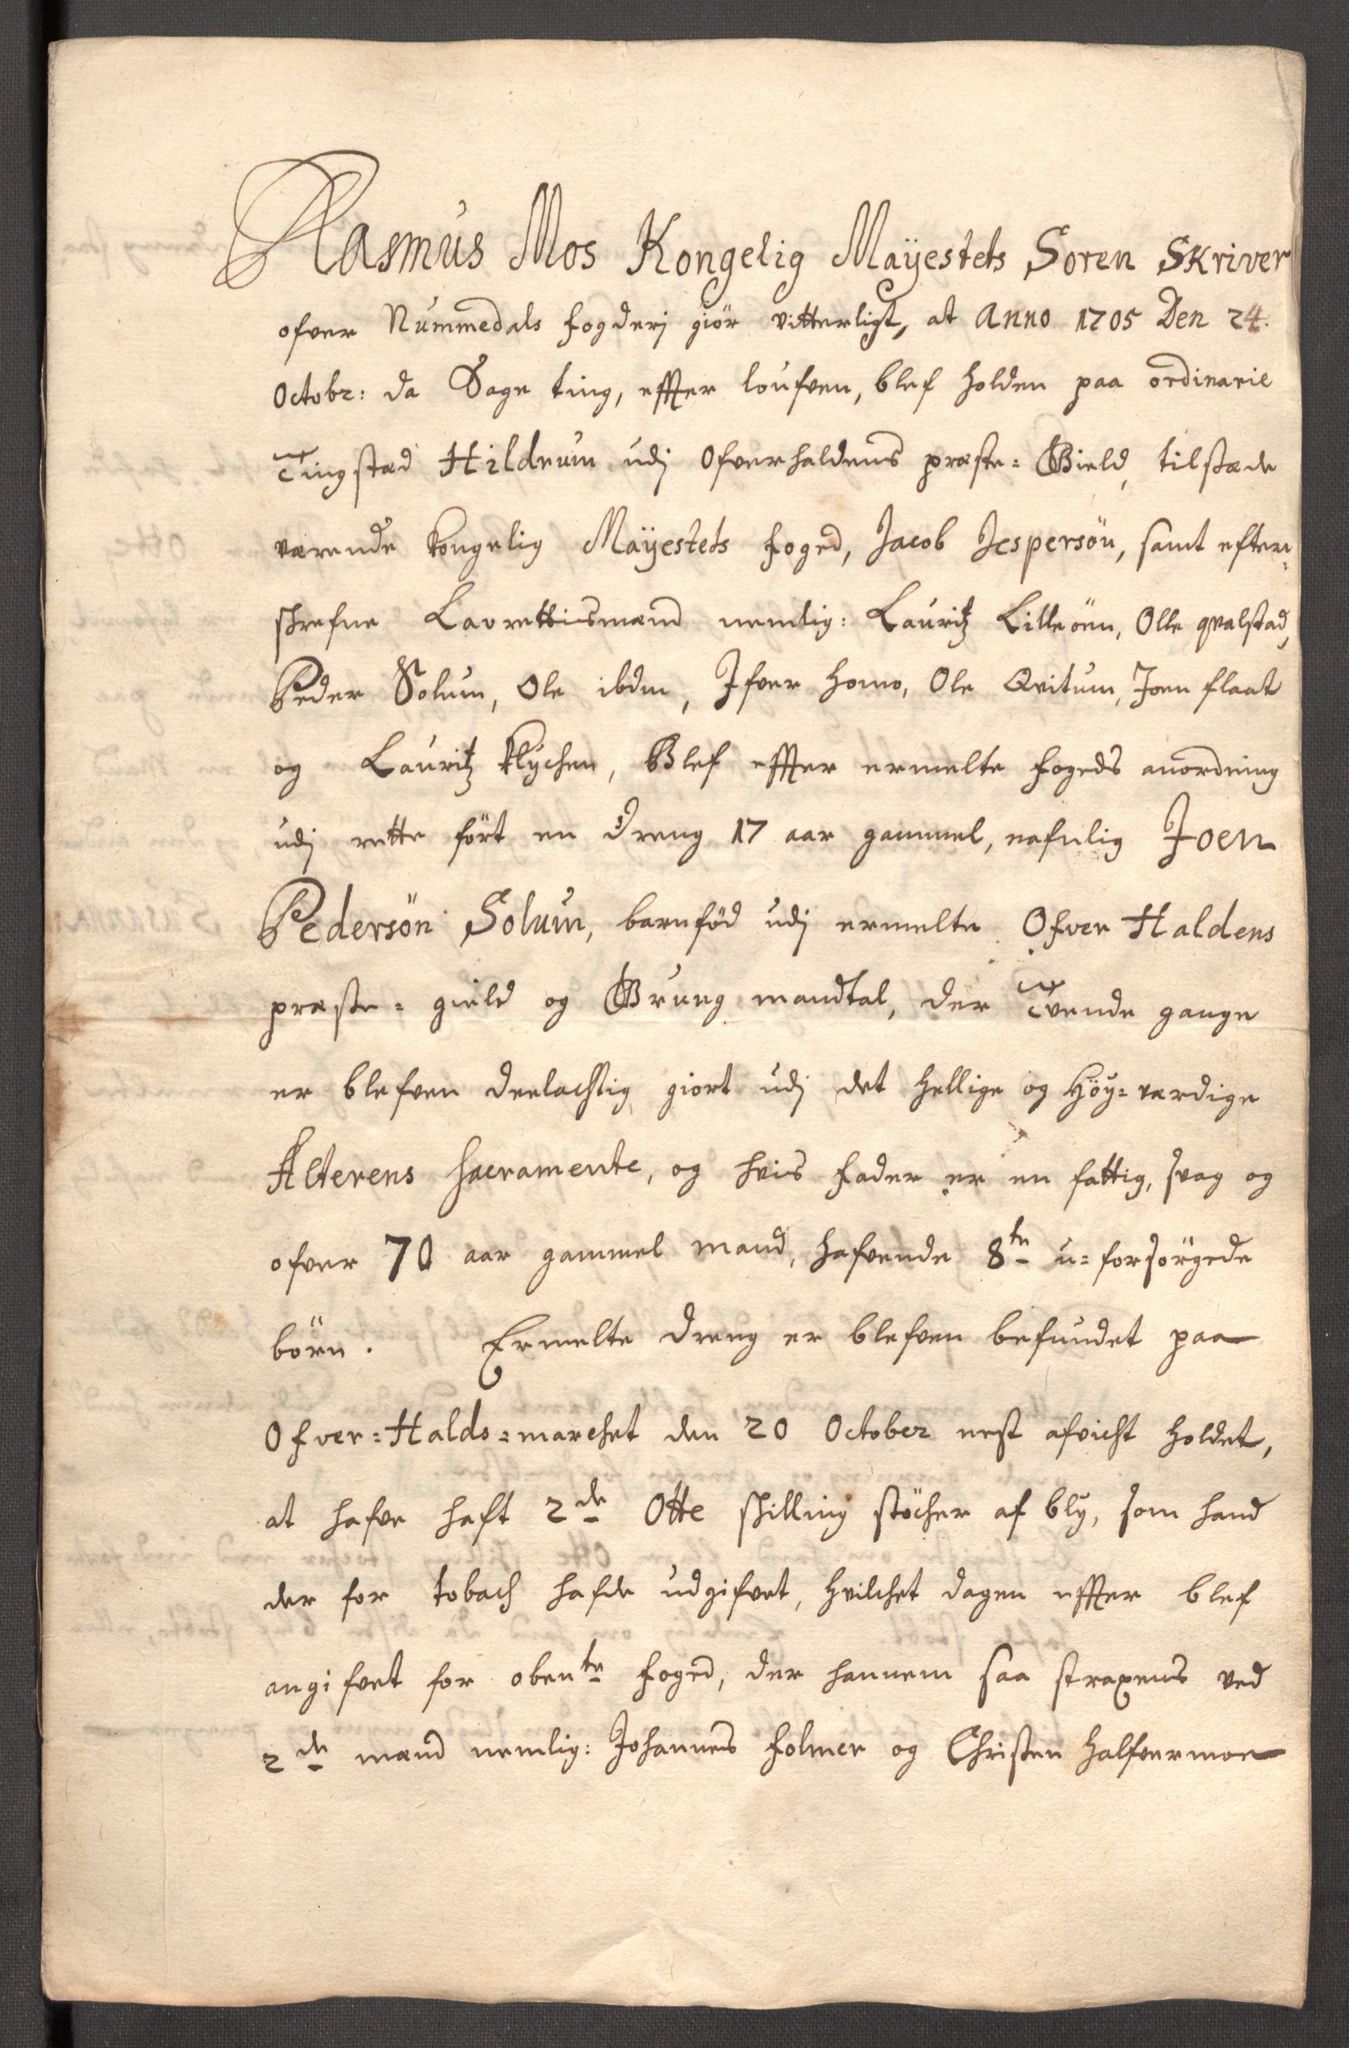 Rasmus Mos Kongelig Maÿestets Soren Skriver
ofver Nummedals fogderj giör vitterligt, at Anno 1705 Den 24.
Octobr: da Sage ting, effter loufven, blef holden paa ordinarie
Tingstæd Hildrum udj Ofverhaldens præste= Gield, tilstæde
værende kongelig Maÿestets foged, Jacob Jespersön, samt efter=
skrefne Lavrettismænd nemlig: Lauritz Lilleöen, Olle qvalstad,
Peder Solum, Ole ibdm, Ifver Homo, Ole Qvitum, Joen flaat
og Lauritz Klÿchen, Blef effter ermelte fogeds anordning
udj rette fört en dreng 17 aar gammel, nafnlig Joen
Pedersön Solum, barnföd udj ermelte Ofver Haldens
præste= gield og Grung mandtal, der Tvende gange
er blefven deelachtig giort udj det hellige og Höÿ= værdige
Alterens sacramente, og hvis fader er en fattig, svag og
ofver 70 aar gammel mand, hafvende 8te u= forsörgede
börn. Ermelte dreng er blefven befundet paa
Ofver= Halds= marchet den 20 October nest afvicht holdet,
at hafve haft 2de Otte skilling stöcher af blÿ, som hand
der for tobach hafde udgifvet, hvilchet dagen effter blef
angifvet for obente foged, der hannem saa straxens ved
2de mænd nemlig: Johannes folmer og Christen Halfvermoe